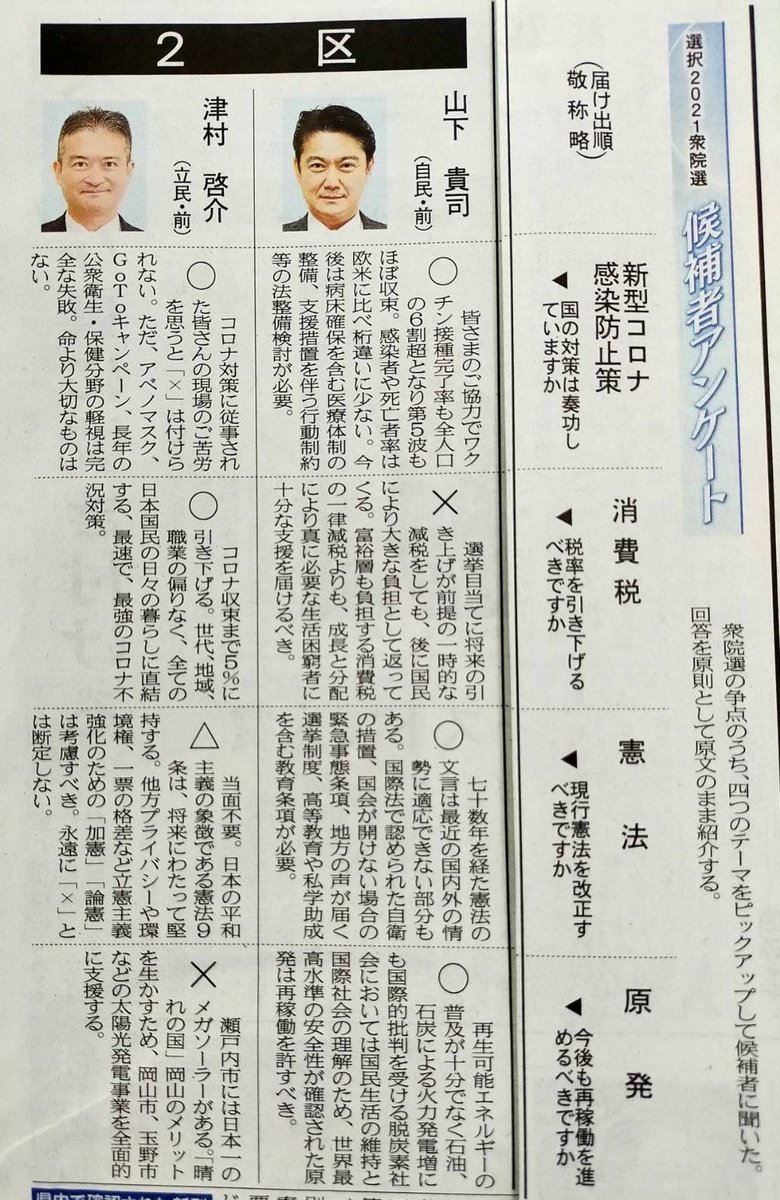 選択2021衆院選
候補者アンケート
衆院選の争点のうち、四つのテーマをピックアップして候補者に聞いた。
回答を原則として原文のまま紹介する。
(届け出順
敬称略)
新型コロナ
感染防止策
▼国の対策は奏功し
ていますか
消費税
▼税率を引き下げる
べきですか
憲法
▼現行憲法を改正す
べきですか
原発
▼今後も再稼働を進
めるべきですか
2区
山下貴司
(自民・前)
○
皆さまのご協力でワク
チン接種完了率も全人口
の6割超となり第5波も
ほぼ収束。感染者や死亡者率は
欧米に比べ桁違いに少ない。今
後は病床確保を含む医療体制の
整備、支援措置を伴う行動制約
等の法整備検討が必要。
×
選挙目当てに将来の引
き上げが前提の一時的な
減税をしても、後に国民
により大きな負担として返って
くる。富裕層も負担する消費税
の一律減税よりも、成長と分配
により真に必要な生活困窮者に
十分な支援を届けるべき。
○
七十数年を経た憲法の
文言は最近の国内外の情
勢に適応できない部分も
ある。国際法で認められた自衛
の措置、国会が開けない場合の
緊急事態条項、地方の声が届く
選挙制度、高等教育や私学助成
を含む教育条項が必要。
○
再生可能エネルギーの
普及が十分でなく石油、
石炭による火力発電増に
も国際的批判を受ける脱炭素社
会においては国民生活の維持と
国際社会の理解のため、世界最
高水準の安全性が確認された原
発は再稼働を許すべき。
津村啓介
(立民・前)
○
コロナ対策に従事され
た皆さんの現場のご苦労
を思うと「×」は付けら
れない。ただ、アベノマスク、
GoToキャンペーン、長年の
公衆衛生・保健分野の軽視は完
全な失敗。命より大切なものは
ない。
○
コロナ収束まで5%に
引き下げる。世代、地域、
職業の偏りなく、全ての
日本国民の日々の暮らしに直結
する、最速で、最強のコロナ不
況対策。
△
当面不要。日本の平和
主義の象徴である憲法9
条は、将来にわたって堅
持する。他方プライバシーや環
境権、一票の格差など立憲主義
強化のための「加憲」「論憲」
は考慮すべき。永遠に「×」と
は断定しない。
×
瀬戸内市には日本一の
メガソーラーがある。「晴
れの国」岡山のメリット
を生かすため、岡山市、玉野市
などの太陽光発電事業を全面的
に支援する。